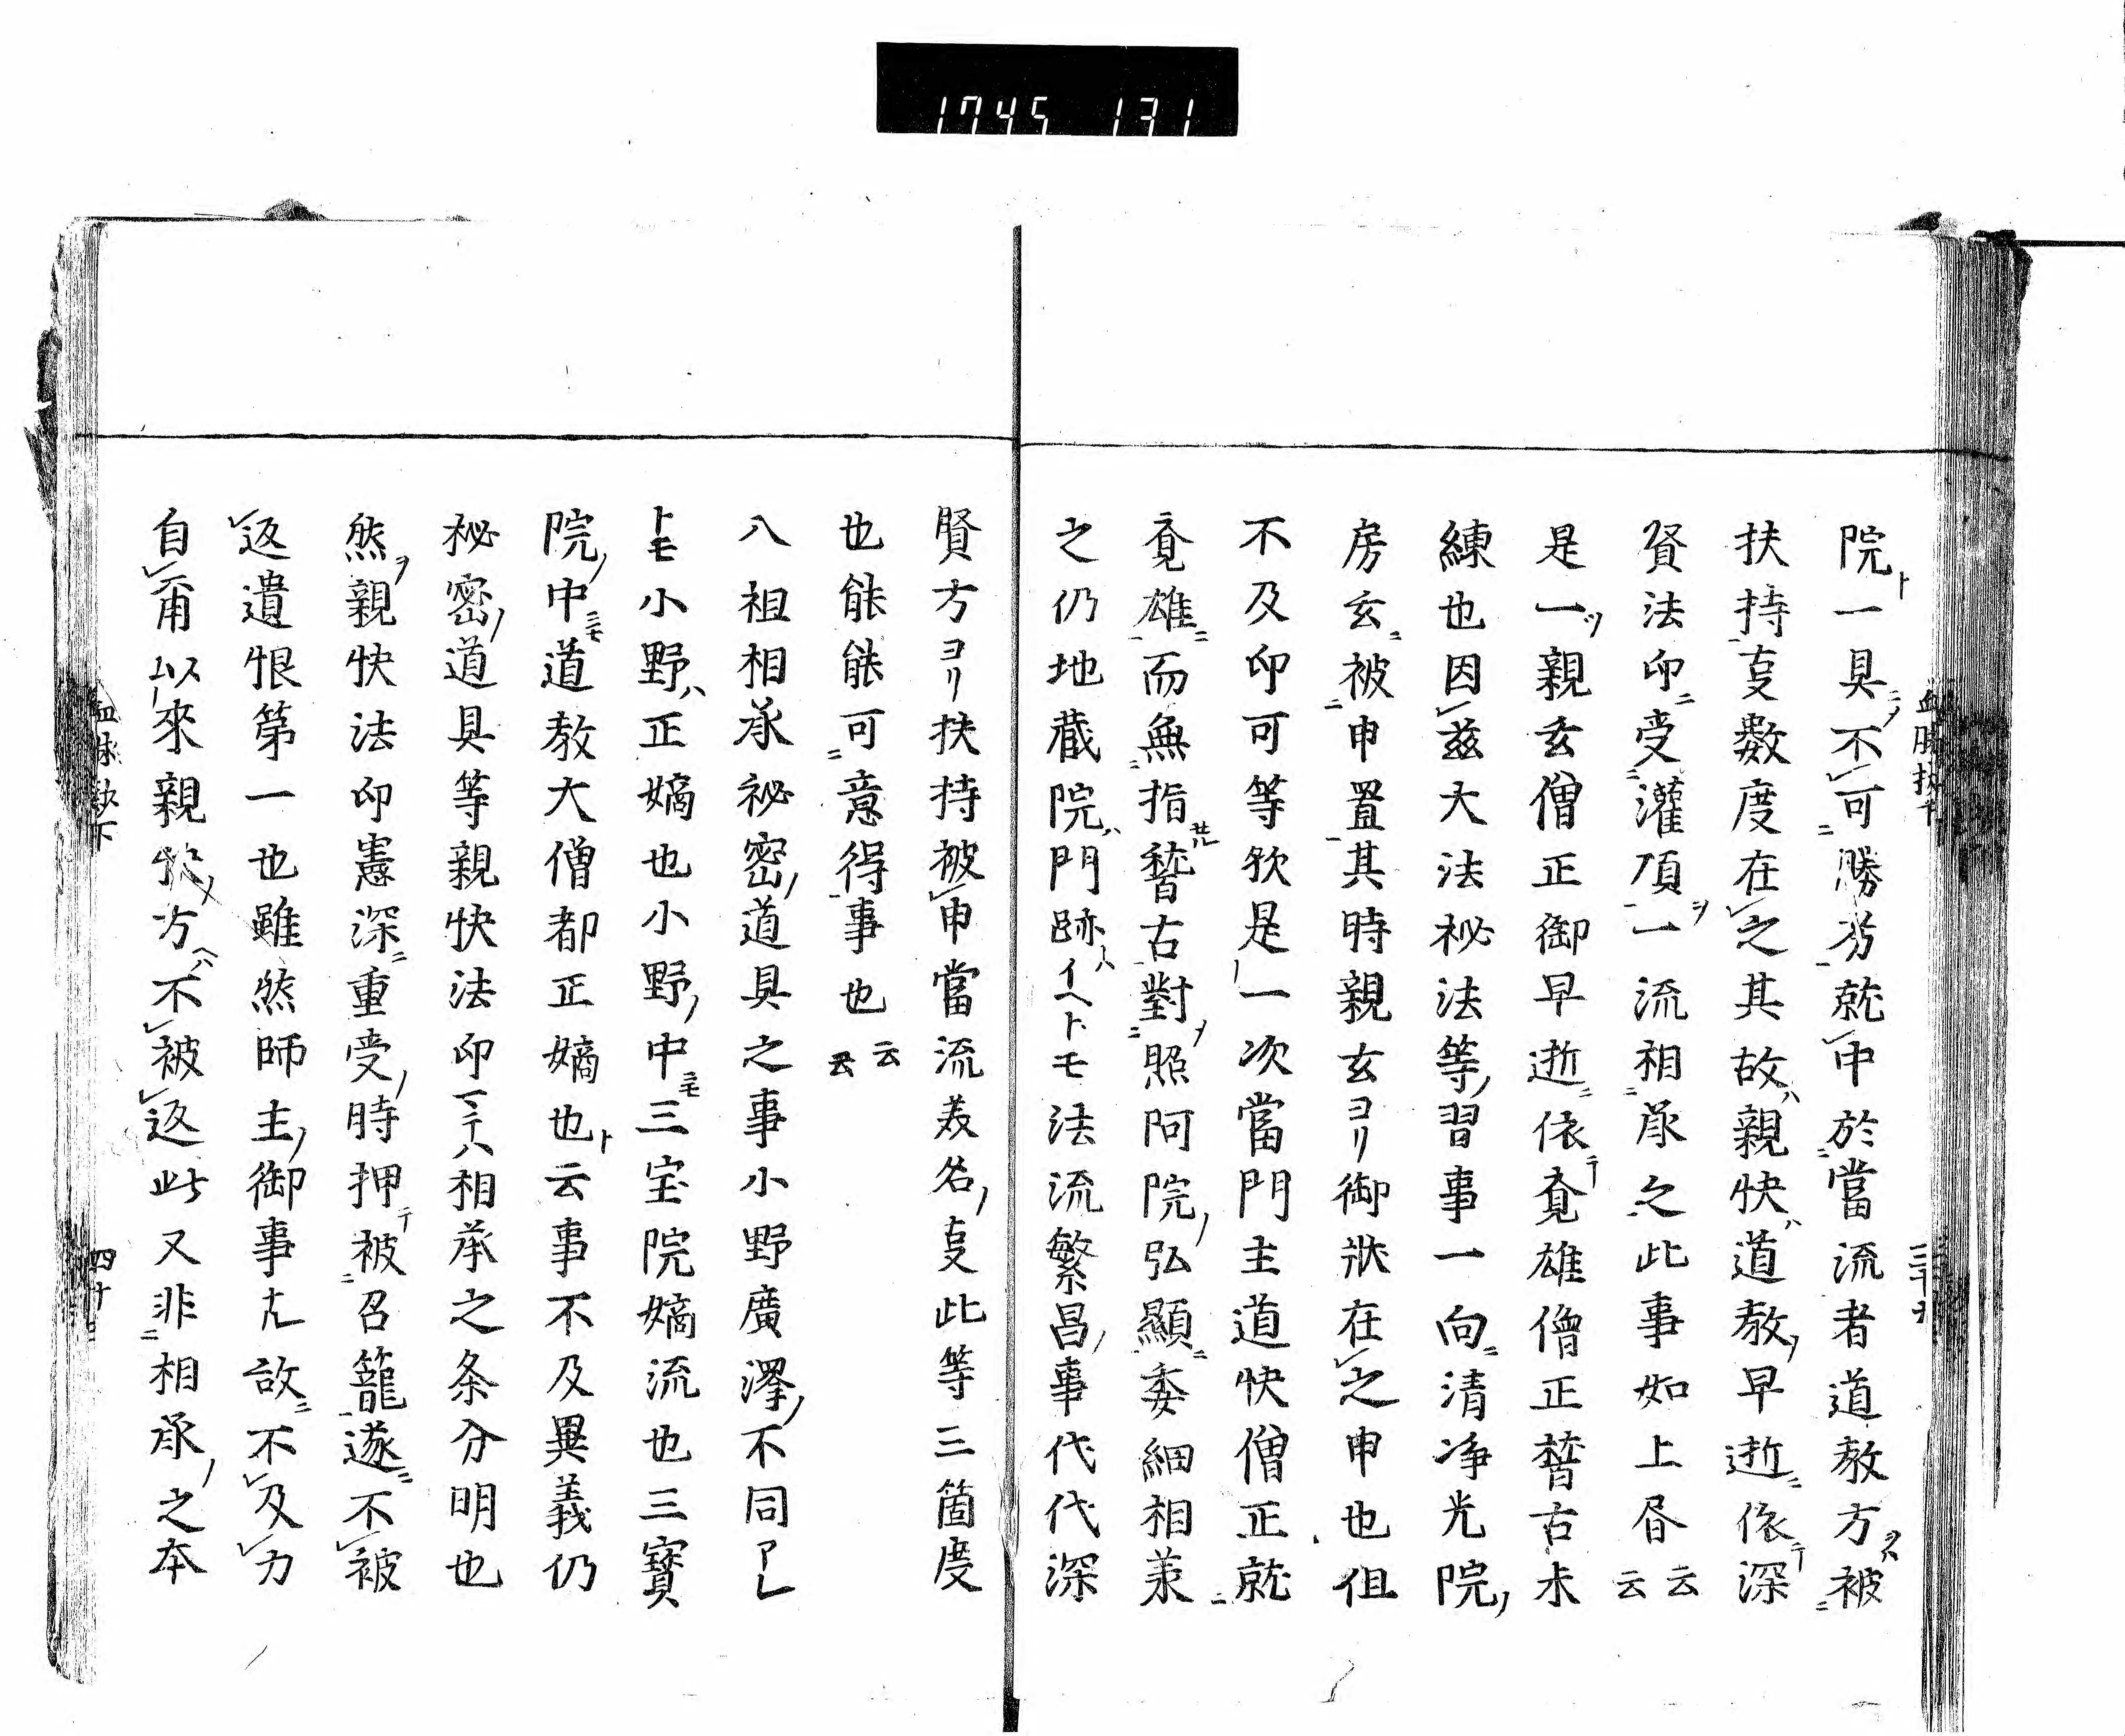 1745 131
院ト一具ニノ不レ可ニ勝劣一就レ中於ニ當流者道教方ヲハ被ニ
扶持一㕝数度在レ之其故ハ親快ハ道教ノ早逝ニ依テ深
賢法印ニ受ニ灌頂一ヲ一流相承之此事如上昏云云
是一ツ親玄僧正御早逝ニ依テ覚雄僧正稽古未
練也因レ茲大法秘法等ノ習事一向ニ清浄光院ノ
房玄ニ被ニ申置一其時親玄ヨリ御状在レ之申也但
不及印可等欤是一次當門主道快僧正就ニ
覚雄一ニ而無ニ指廿ル稽古對ニヲ照阿院ノ弘顯一ニ委細相兼
之仍地蔵院ハ門跡ハイヘトモ法流繁昌ノ事代代深
賢方ヨリ扶持被レ申當流美名ノ㕝此等三箇度
也能能可ニ意得一事也云云
八祖相承祕密ノ道具之事小野廣澤ノ不同アレ
トモ小野ハ正嫡也小野ノ中ニモ三宝院嫡流也三寳
院ノ中ニモ道教大僧都正嫡也ト云事不及異義仍
秘密ノ道具等親快法印マテハ相承之条分明也
然ヲ親快法印憲深ニ重受ノ時押テ被ニ召籠一遂ニ不レ被
レ返遺恨第一也雖然師主ノ御事ナレ故ニ不レ及レ力
自レ甬以來親快ノ方ヘハ不レ被レ返此又非ニ相承ノ之本
血脉鈔下
四十